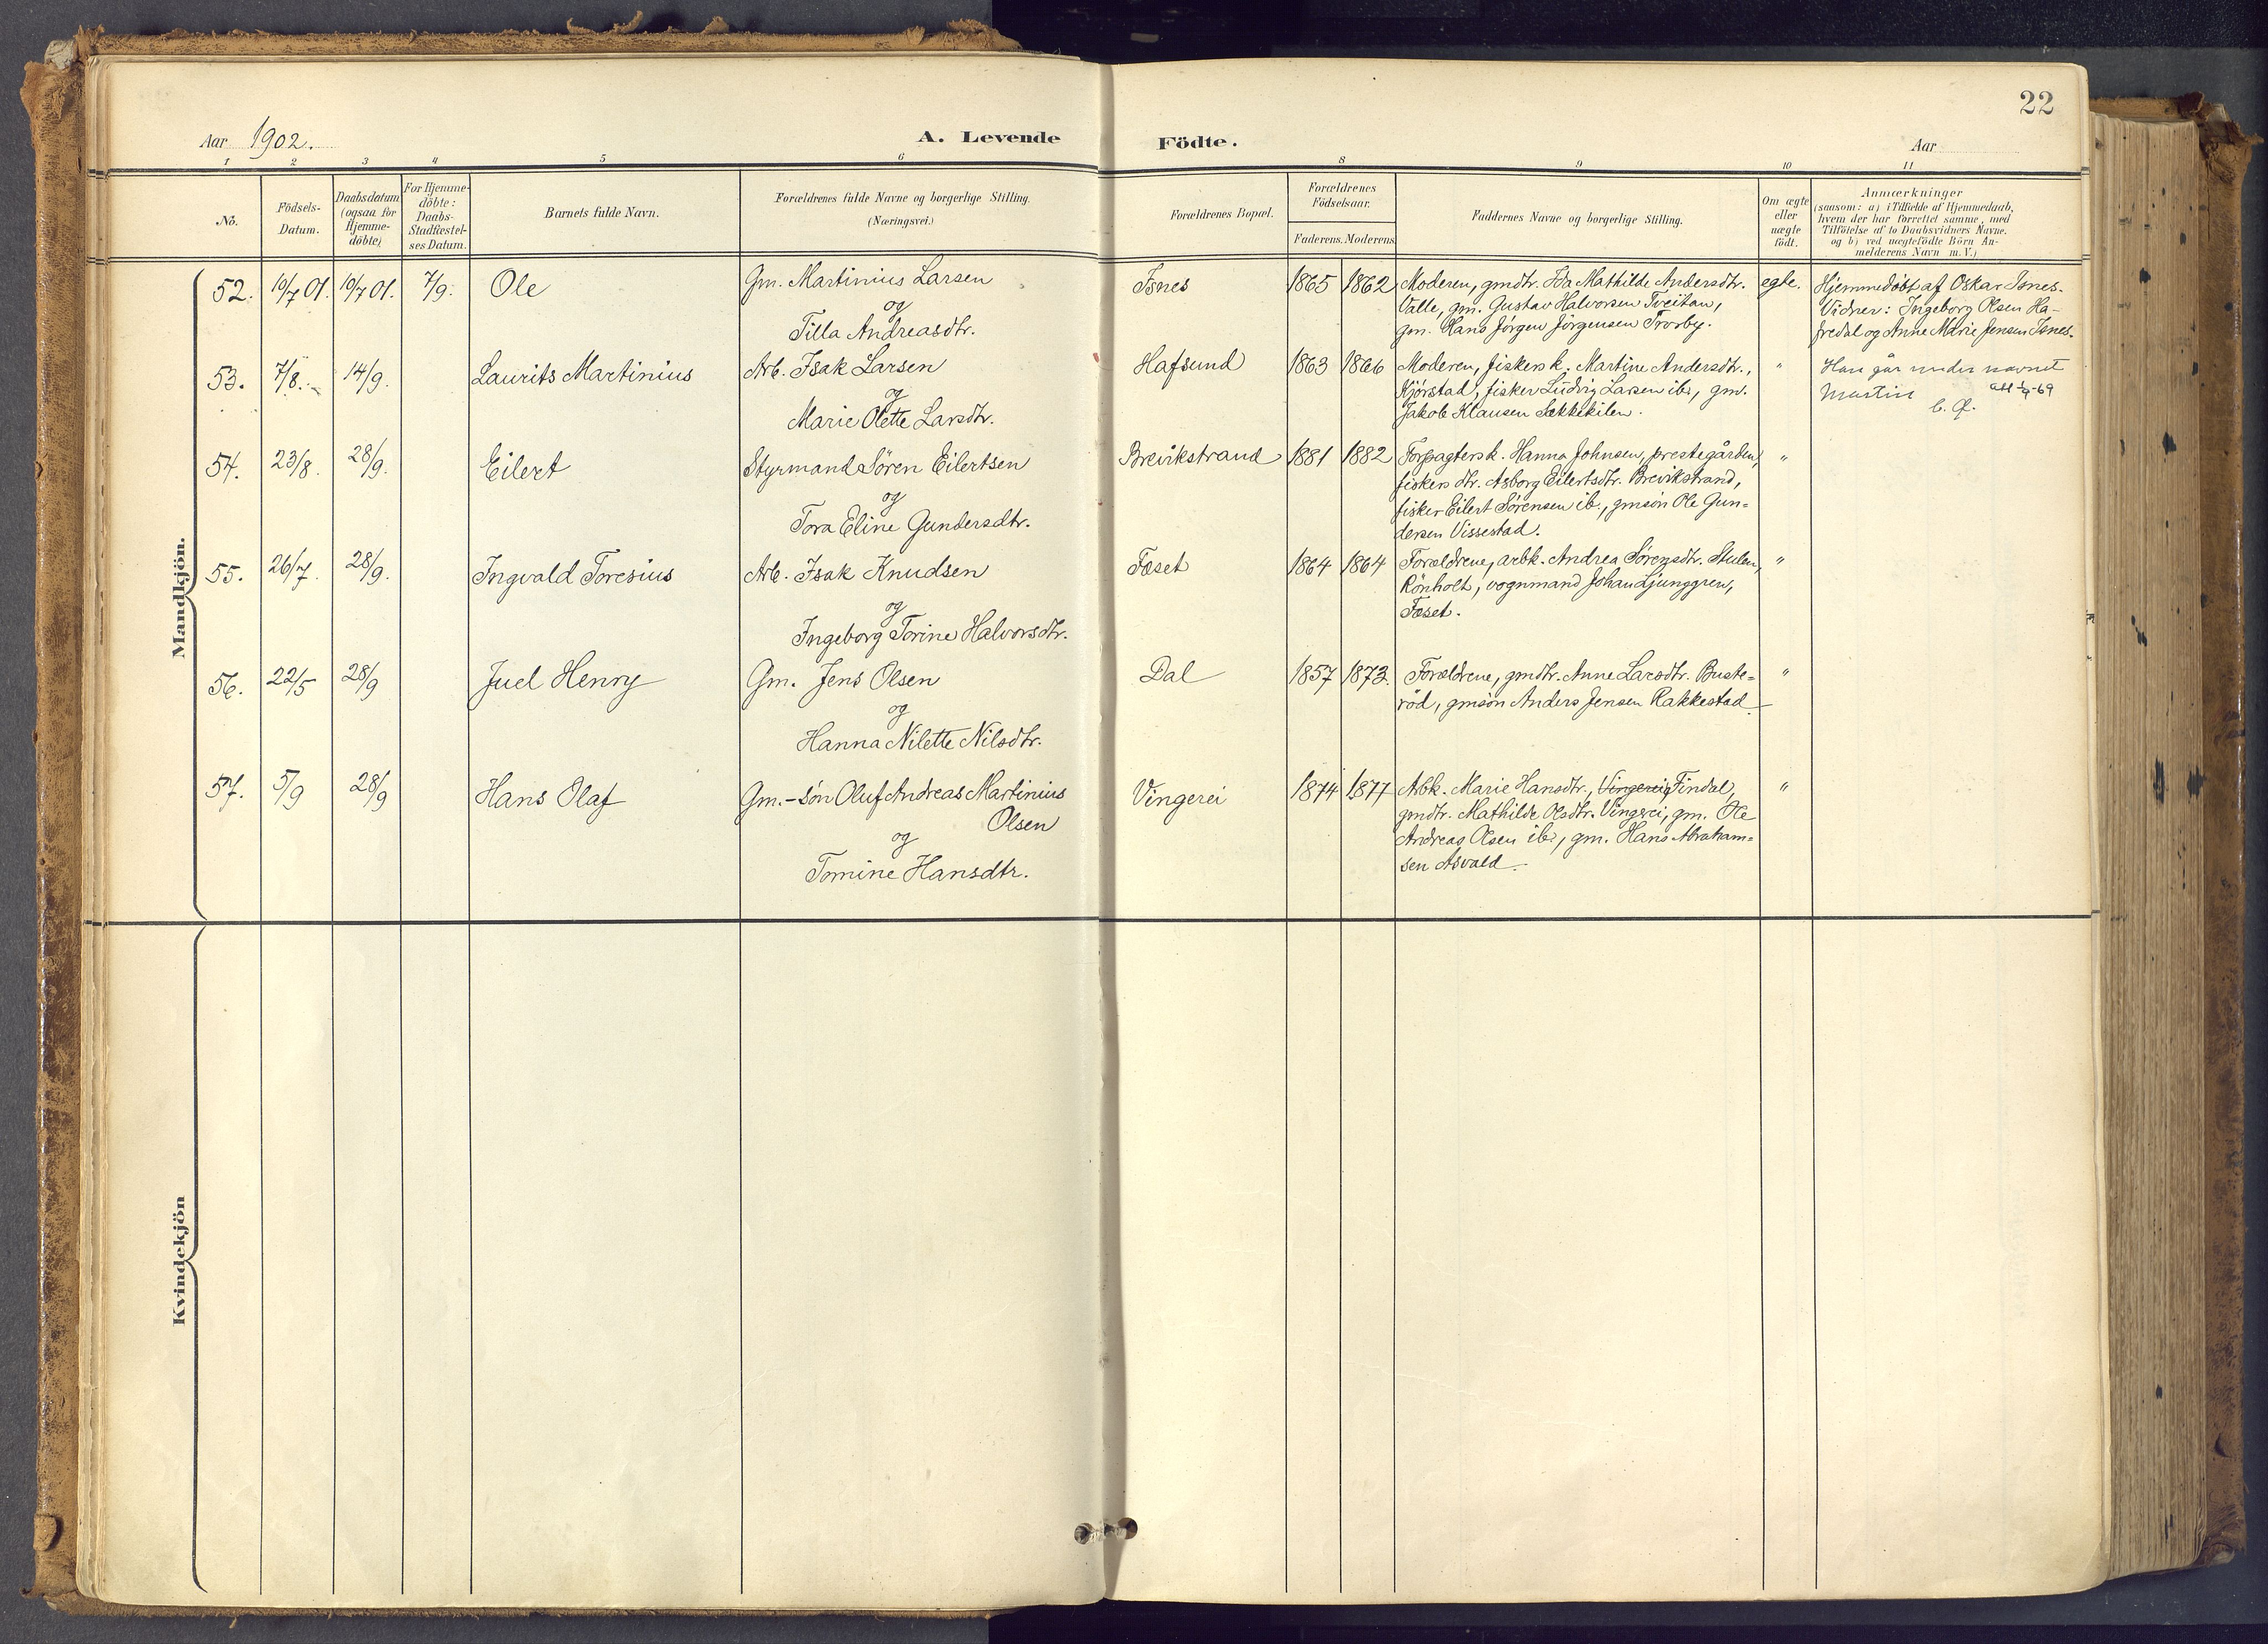 22
Aar 1902.
A. Levende Födte.
Aar
1 2 3 4 5 6 8 9 10 11
No.
Födsels-
Datum.
Daabsdatum
(ogsaa for
Hjemme-
döbte)
For Hjemme-
döbte:
Daabs-
Stadfæstel-
ses Datum.
Barnets fulde Navn.
Forældrenes fulde Navne og borgerlige Stilling.
(Næringsvei.)
Forældrenes Bopæl.
Forældrenes
Födselsaar.
Faderens. Moderens.
Faddernes Navne og borgerlige Stilling.
Om ægte
eller
uægte
födt.
Anmærkninger
(saasom: a) i Tilfælde af Hjemmedaab,
hvem der har forrettet samme, med
Tilföielse af to Daabsvidners Navne.
og b) ved uægtefödte Börn An-
melderens Navn m. V.)
Mandkjön.
52. 10/7 01. 10/7 01. 7/9. Ole
Gm. Martinius Larsen
og
Tilla Andreasdtr.
Isnes 1865 1862
Moderen, gmdtr. Ida Mathilde Andersdtr.
Valle, gm. Gustav Halvorsen Tveitan,
gm. Hans Jörgen Jörgensen Trosby.
egte.
Hjemmedöbt af Oskar Isnes.
Vidner: Ingeborg Olsen Ha-
fredal og Anne Marie Jensen Isnes.
53. 7/8. 14/9. Laurits Martinius
Arb. Isak Larsen
og
Marie Olette Larsdtr.
Hafsund 1863 1866
Moderen, fiskers k. Martine Andersdtr.,
Kjörstad, fisker Ludvig Larsen ib., gm.
Jakob Klausen Sækkekilen.
"
Han går under navnet
Martin
54. 23/8. 28/9. Eilert
Styrmand Sören Eilertsen
og
Tora Eline Gundersdtr.
Brevikstrand 1881 1882
Forpagters k. Hanna Johnsen, prestegården,
fiskers dtr. Asborg Eilertsdtr. Brevikstrand,
fisker Eilert Sörensen ib., gmsön Ole Gun=
dersen Vissestad.
"
55. 26/7. 28/9. Ingvald Toresius
Arb. Isak Knudsen
og
Ingeborg Torine Halvorsdtr.
Foset 1864 1864
Forældrene, arbk. Andrea Sörensdtr. Stulen,
Rönholt, vognmand Johan Ljunggren,
Foset.
"
56. 22/5 28/9 Juel Henry
Gm. Jens Olsen
og
Hanna Nilette Nilsdtr.
Dal 1857 1873.
Forældrene, gmdtr. Anne Larsdtr. Buste=
röd, gmsön Anders Jensen Rakkestad.
"
57. 5/9 28/9 Hans Olaf
Gm.-sön Oluf Andreas Martinius
Olsen
og
Tomine Hansdtr.
Vingerei 1874 1877
Arbk. Marie Hansdtr., Vingerei, Findal,
gmdtr. Mathilde Olsdtr. Vingerei, gm. Ole
Andreas Olsen ib., gm. Hans Abraham=
sen Asvald.
"
Kvindekjön